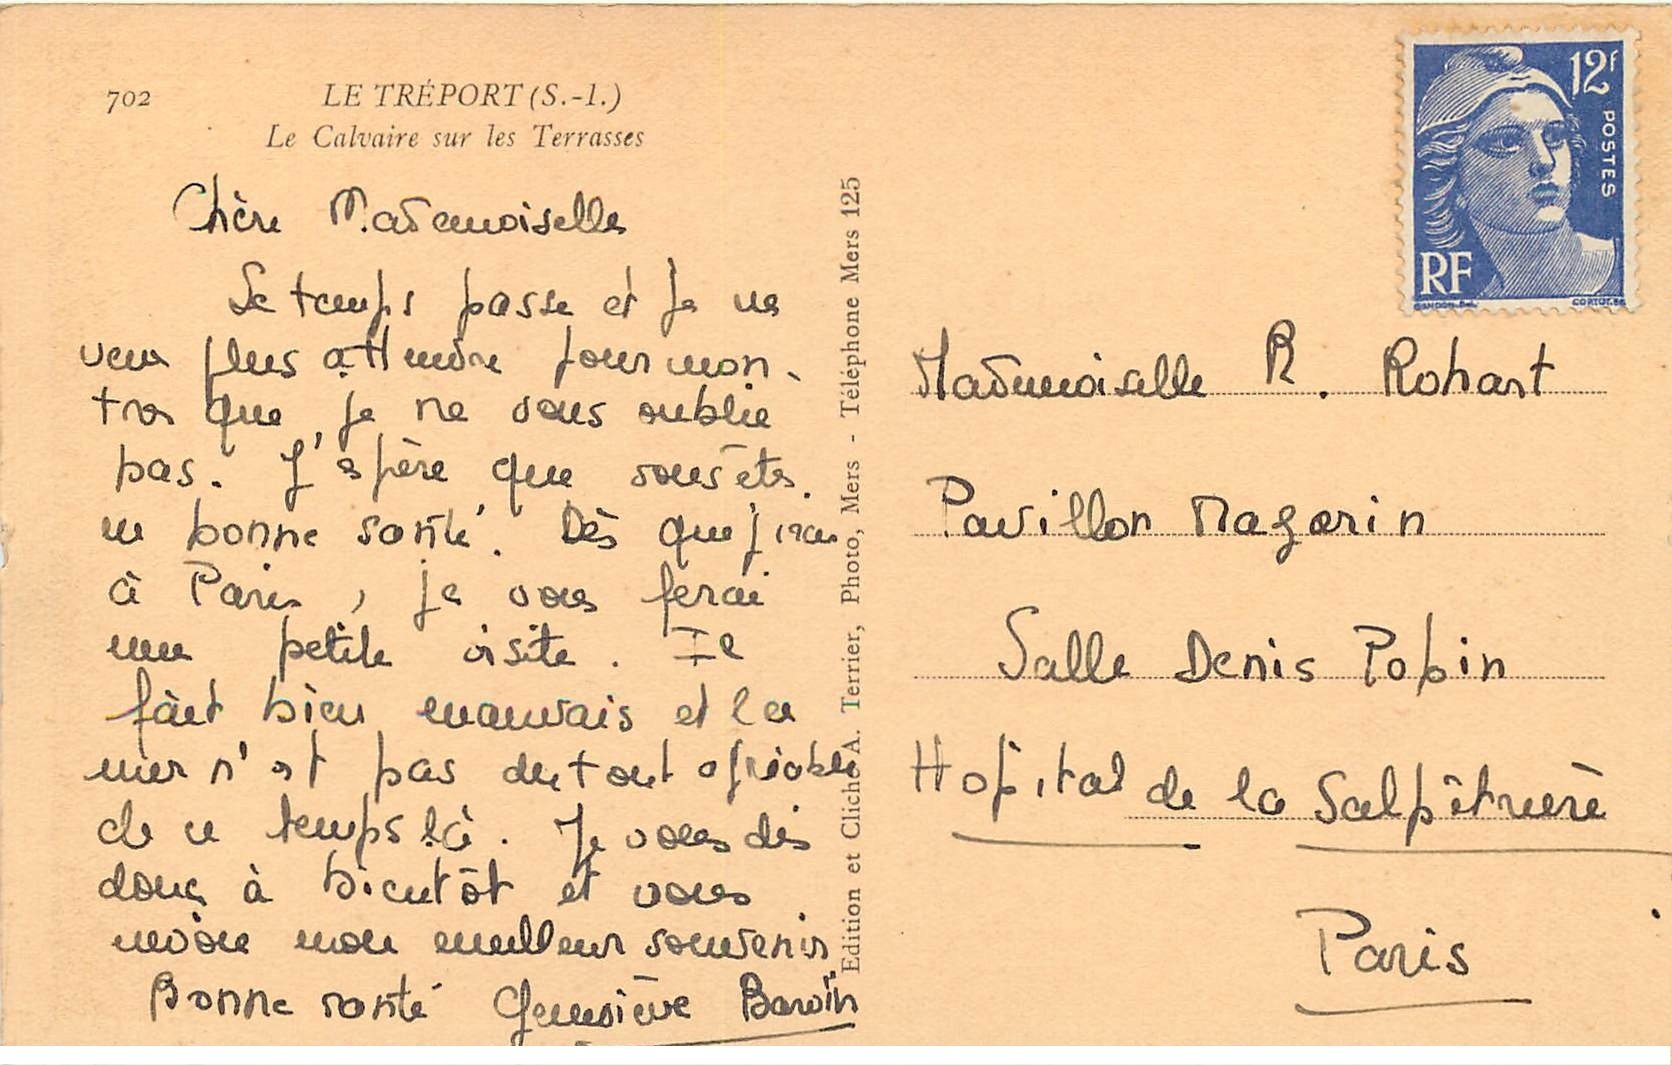 702
LE TRÉPORT (S.-I.)
Le Calvaire sur les Terrasses
Chère Mademoiselle
Le temps passe et je ne
veux plus attendre pour mon-
trer que je ne vous oublie
pas. J'espère que vous êtes
en bonne santé. Dès que j'irai
à Paris, je vous ferai
une petite visite. Il
fait bien mauvais et la
mer n'est pas du tout agréable
de ce temps là. Je vous dis
donc à bientôt et vous
envoie mon meilleur souvenir
Bonne santé Geneviève
Edition et Cliché A. Terrier, Photo, Mers - Téléphone Mers 125
12f
POSTES
RF
GANDON
CORTOT
Mademoiselle R. Rohart
Pavillon Mazarin
Salle Denis Papin
Hopital de la Salpêtrière
Paris